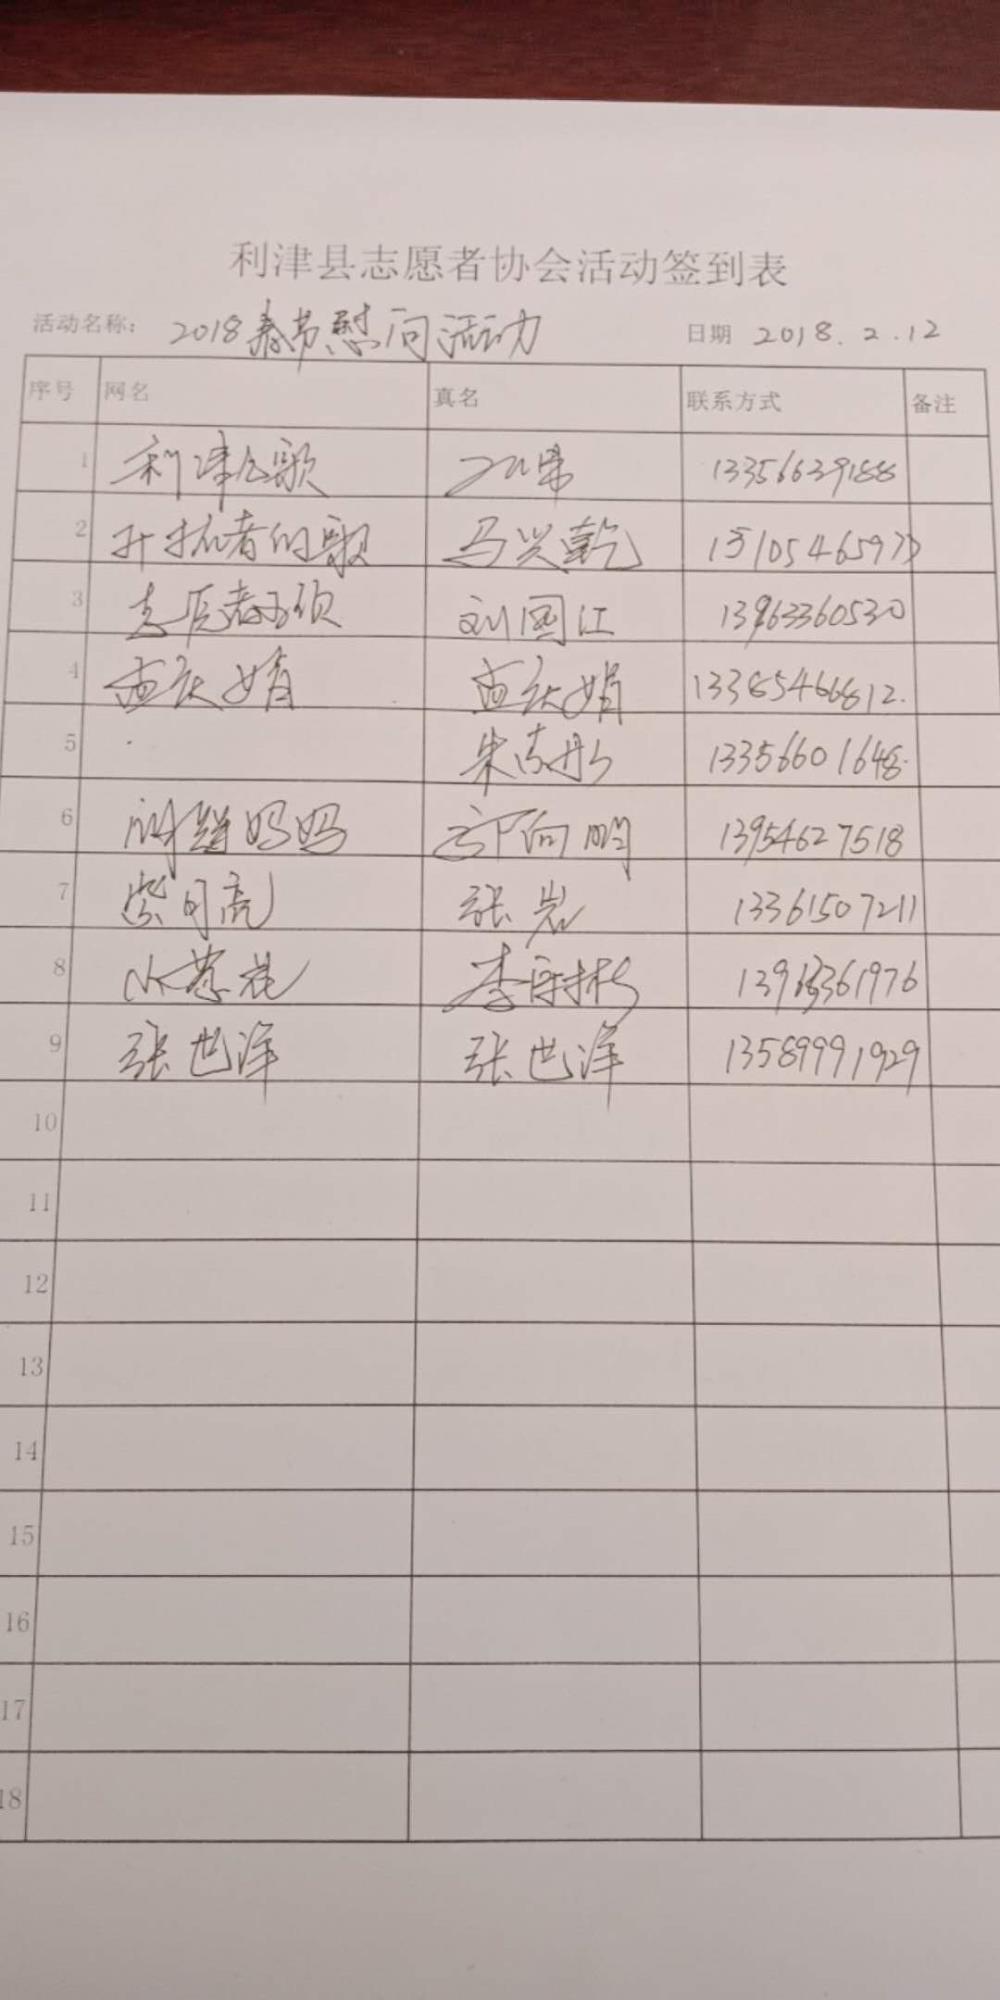 利津县志愿者协会活动签到表
活动名称: 2018春节慰问活动 日期 2018.2.12
序号 网名 真名 联系方式 备注
1 利津公歌 13356639188
2 开拓者的歌 马兴乾 15105465977
3 志愿者 刘国江 13963360530
4 孟庆娟 孟庆娟 13385466812.
5 朱志彤 13356601648
6 妈妈 向明 13954627518
7 紫月亮 张岩 13361507211
8 小葱花 李 彬 13963361976
9 张世洋 张世洋 13589991929
10
11
12
13
14
15
16
17
18